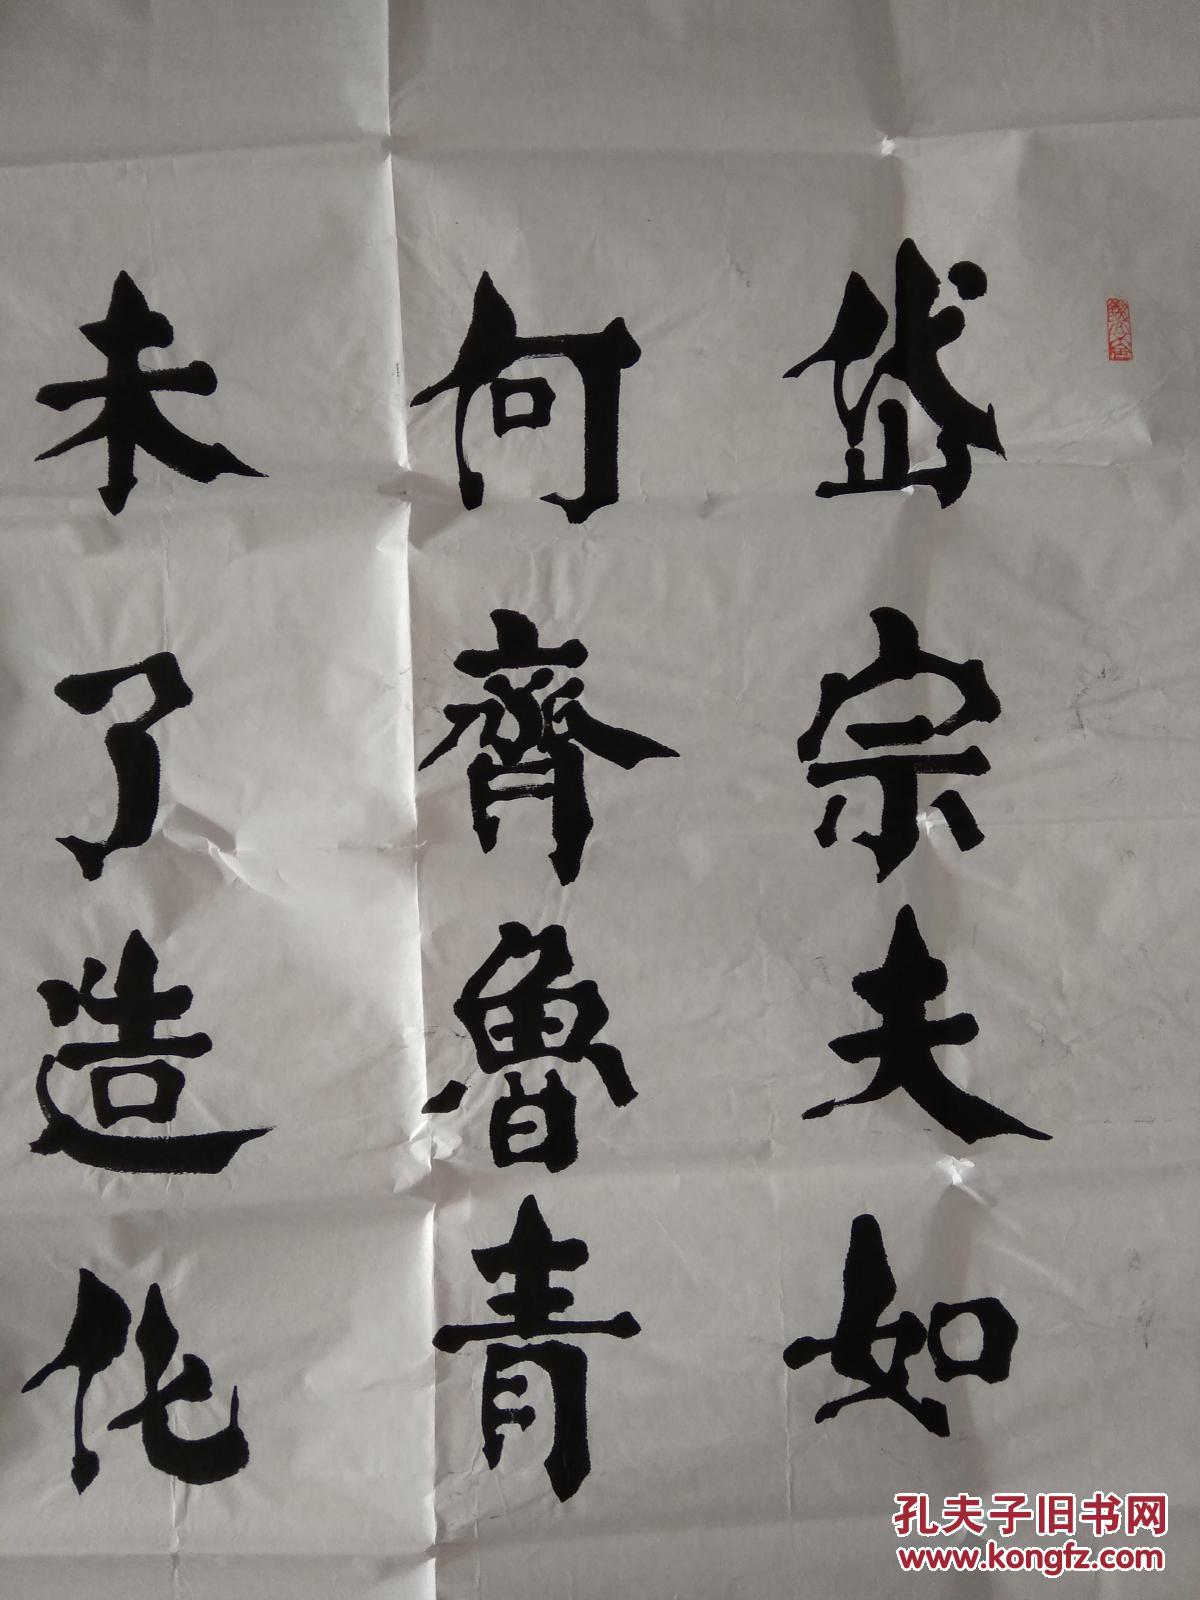 岱宗夫如
何齊魯青
未了造化
孔夫子旧书网
www.kongfz.com